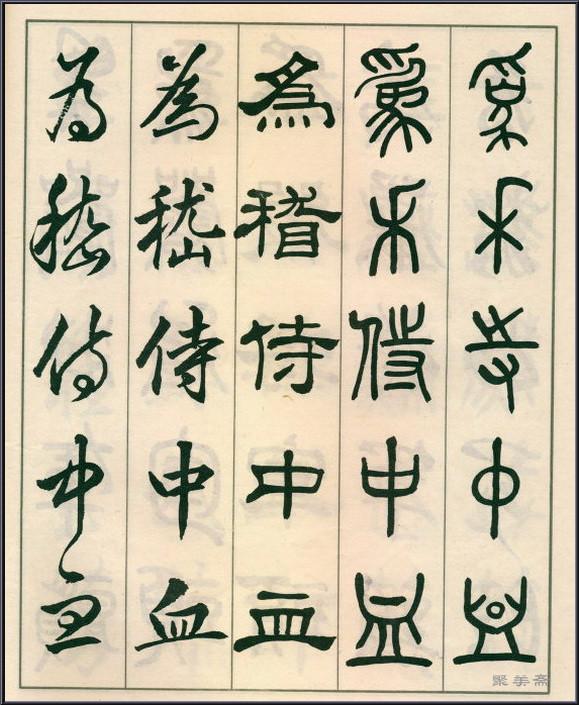 爲禾寺中血
爲禾侍中血
爲稽侍中血
為嵇侍中血
為嵇侍中血
聚美斋